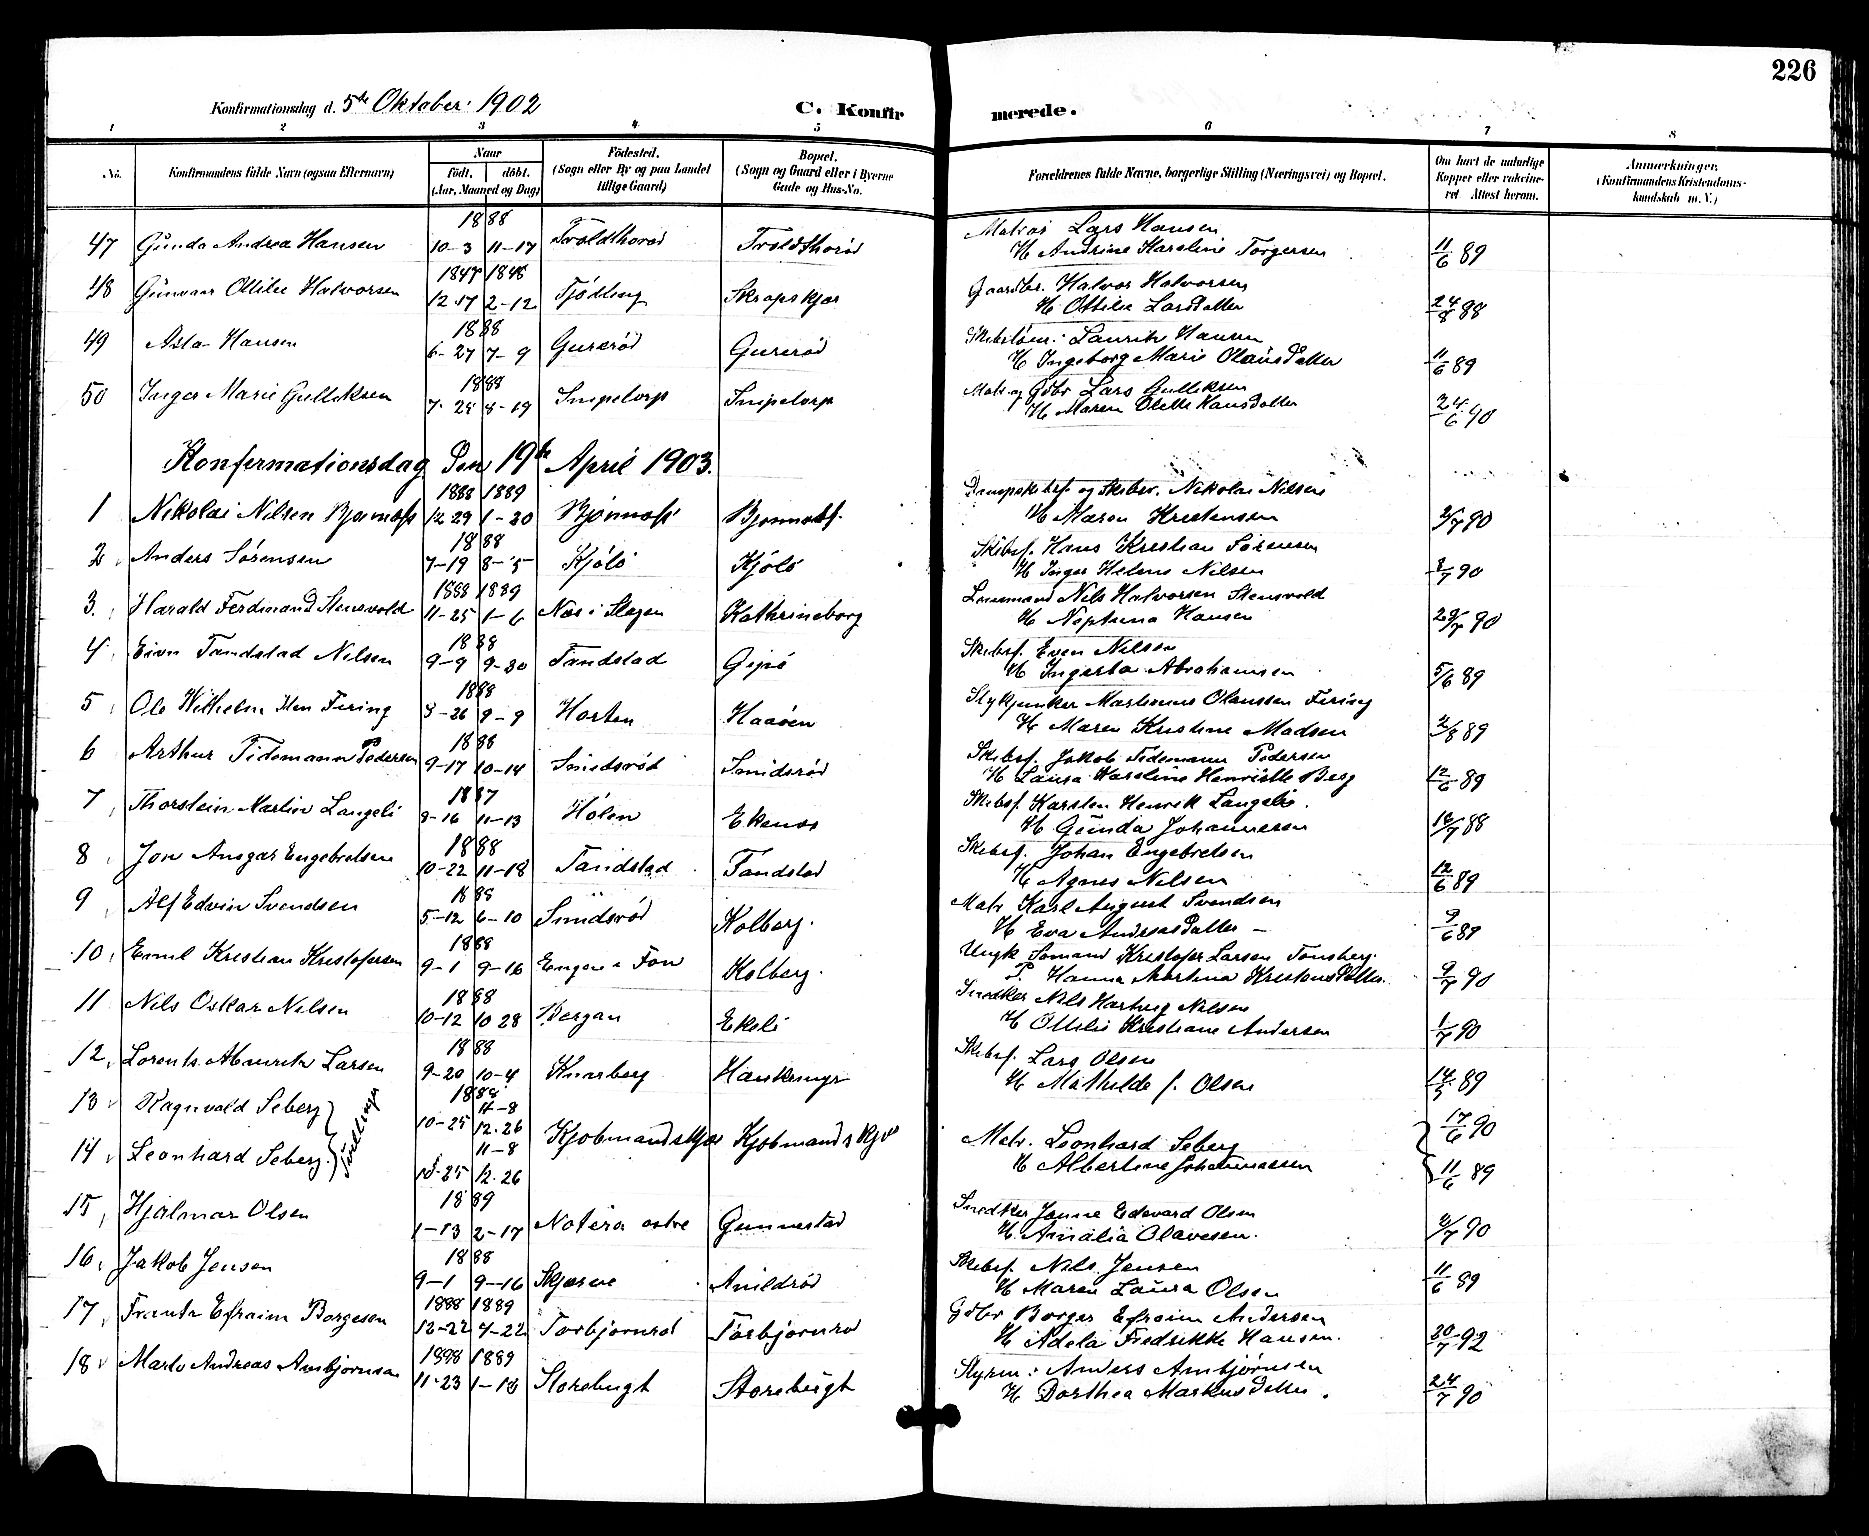 226
Konfirmationsdag d. 5te Oktober 1902
C. Konfirmerede.
1 2 3 4 5 6 7 8
No. Konfirmandens fulde Navn (ogsaa Efternavn) Naar født. døbt. (Aar, Maaned og Dag) Fødested. (Sogn eller By og paa Landet tillige Gaard) Bopæl. (Sogn og Gaard eller i Byerne Gade og Hus-No. Forældrenes fulde Navne, borgerlige Stilling (Næringsvei) og Bopæl. Om havt de naturlige Kopper eller vakcineret Attest herom. Anmærkninger. (Konfirmandens Kristendomskundskab m. V.)
1888
47 Gunda Andrea Hansen 10-3 11-17 Troldthorød Troldthorød Matros Lars Hansen
H Andrine Karoline Torgersen 11/6 89
1847 1848
48 Gunvor Ottilie Halvorsen 12-17 2-12 Tjødling Skrapskjær Gaardbr. Halvor Halvorsen
H Ottilie Larsdatter 24/8 88
1888
49 Asta Hansen 6-27 7-9 Gurerød Gurerød Lauritz Hansen
H Ingeborg Marie Olausdatter 11/6 89
1888
50 Inger Marie Gulliksen 7-28 8-19 Smpelorp Smpelorp Matr og Gdbr Lars Gulliksen
H Maren Olette Hansdatter 24/6 90
Konfermationsdag Den 19de April 1903.
1888 1889
1 Nikolai Nilsen Bjørnaas 12 29 1-20 Bjørnaas Bjørnaas Dampskibsf. og Skibsr. Nikolai Nilsen
H Maren Kristensen 2/7 90
1888
2 Anders Sørensen 7-19 8-5 Kjølø Kjølø Skibsf. Hans Kristian Sørensen
H Inger Helene Nilsen 2/7 90
1888 1889
3 Harald Ferdinand Stensvold 11-25 1-6 Næs i Slagen Kathrineborg Lensmand Nils Halvorsen Stensvold
H Neptuna Hansen 29/7 90
1888
4 Even Tandstad Nilsen 9-9 9-30 Tandstad Gipø Skibsf. Even Nilsen
H Ingarta Abrahamsen 5/6 89
1888
5 Ole Wilhelm Fering 8-26 9-9 Horten Haaøen Stykjunker Martinus Olaussen Fering
H Maren Kristine Madsen 2/8 89
1888
6 Arthur Tidemann Pedersen 9-17 10-14 Smidsrød Smidsrød Skibsf. Jakob Tidemann Pedersen
H Laura Karoline Henriette Berg 12/6 89
1887
7 Thorstein Martin Langeli 8-16 11-13 Holen Ekenæs Skibsf. Karsten Henrik Langeli.
H Gunda Johannesen 16/7 88
1888
8 Jon Ansgar Engebretsen 10-22 11-18 Tandstad Tandstad Skibsf. Johan Engebretsen
H Agnes Nilsen 12/6 89
1888
9 Alf Edvin Svendsen 5-12 6-10 Smidsrød Kolberg. Matr Karl August Svendsen
H Eva Andreasdatter 9/6 89
1888
10 Emil Kristian Kristofersen 9-1 9-16 Engen i Fon Kolberg. Ungk Sømand Kristofer Larsen Tønsberg.
P Hanna Martina Kristensdatter. 9/7 90
1888
11 Nils Oskar Nilsen 10-12 10 28 Bergan Ekeli Snedker Nils Hartvig Nilsen
H Ottilie Kristiane Andersen 1/7 90
1888
12 Lorents Larsen 9-20 10-4 Knarberg Haukemyr Skibsf. Lars Olsen
H Mathilde f. Olsen 14/5 89
1888
13 Ragnvald Seberg 10-25 11-8 12.26 Kjøbmandskjær Kjøbmandskjær Matr. Leonhard Seberg 17/6 90
Tvillinger
14 Leonhard Seberg 10-25 11-8 12.26 H Albertine Johannessen 11/6 89
1889
15 Hjalmar Olsen 1-13 2-17 Nøterø østre Gunnestad Snedker Janne Edevard Olsen
H. Amalia Olavesen. 2/7 90
1888
16 Jakob Jensen 9-1 9-16 Skjærve Anildrød Skibsf. Nils Jensen
H Maren Laura Olsen 11/6 89
1888 1889
17 Frantz Efraim Borgesen 12-22 4-22 Torbjørnrød Torbjørnrød Gdbr Borger Efraim Andersen
H Adela Fredrikke Hansen. 20/7 92
1888 1889
18 Marlo Andreas Arnbjørnsen 11-23 1-18 Storebugt Storebugt Styrm: Anders Arnbjørnsen
H Dorthea Markusdatter. 24/7 90